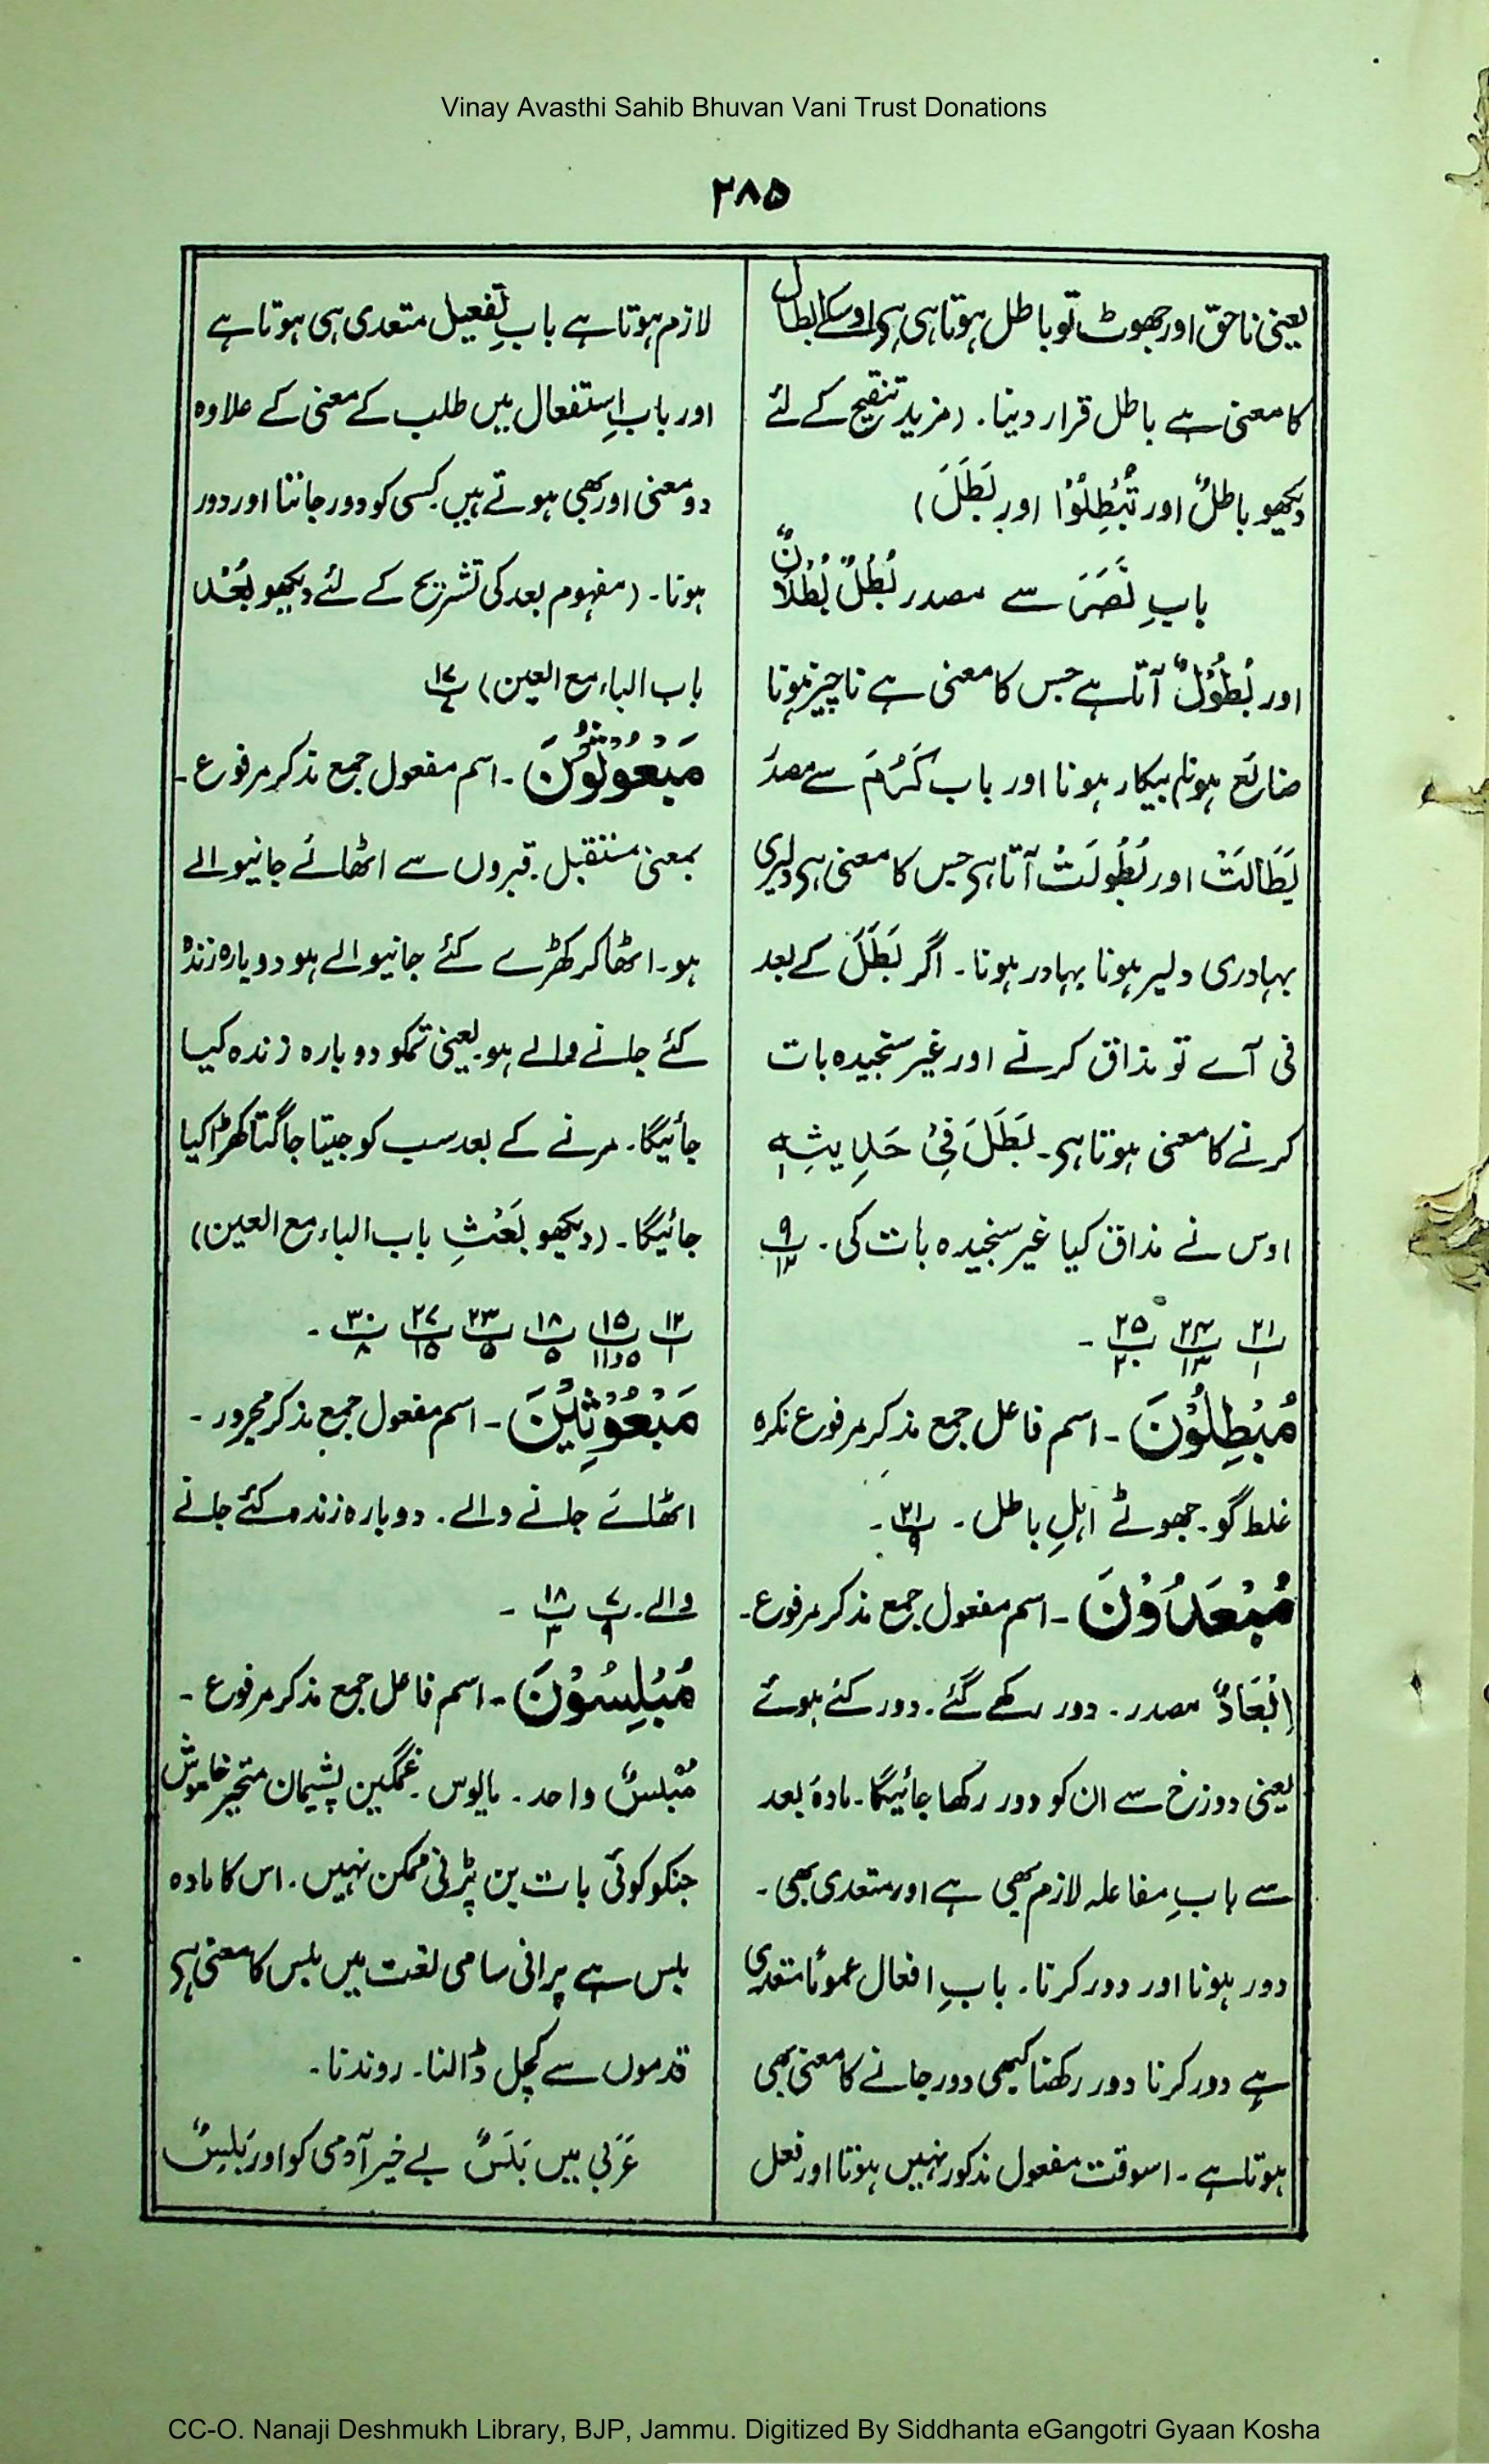 Vinay Avasthi Sahib Bhuvan Vani Trust Donations
۲۸۵
یعنی ناحق اور جھوٹ تو باطل ہوتا ہی ہی اوسکے ابطال
کا معنی ہے باطل قرار دینا۔ (مزید تنقیح کے لئے
دیکھو باطلٌ اور تُبْطِلُوْا اور بَطَلَ)
بابِ نَصَرَ سے مصدر بُطْلٌ بُطْلَانٌ
اور بُطُوْلٌ آتا ہے جس کا معنی ہے ناچیز ہونا
ضائع ہونا بیکار ہونا اور باب کَرُمَ سے مصدر
بَطَالَتْ اور بُطُولَتْ آتا ہی جس کا معنی ہی دلیری
بہادری دلیر ہونا بہادر ہونا۔ اگر بَطَلَ کے بعد
فی آے تو مذاق کرنے اور غیر سنجیدہ بات
کرنے کا معنی ہوتا ہی۔ بَطَلَ فِیْ حَدِیثِہٖ
اوس نے مذاق کیا غیر سنجیدہ بات کی۔ پ۹/۱۲
پ۲۱/۱ پ۲۴/۱۳ پ۲۵/۲۰ ۔
مُبْطِلُوْنَ ۔ اسم فاعل جمع مذکر مرفوع نکرہ
غلط گو۔ جھوٹے اہلِ باطل ۔ پ۲۱/۹ ۔
مُبْعَدُوْنَ ۔ اسم مفعول جمع مذکر مرفوع۔
اِبْعَادٌ مصدر۔ دور رکھے گئے۔ دور کئے ہوئے
یعنی دوزخ سے ان کو دور رکھا جائیگا۔ مادۂ بعد
سے بابِ مفاعلہ لازم بھی ہے اور متعدی بھی۔
دور ہونا اور دور کرنا۔ بابِ افعال عموماً متعدی
ہے دور کرنا دور رکھنا کبھی دور جانے کا معنی بھی
ہوتا ہے۔ اسوقت مفعول مذکور نہیں ہوتا اور فعل
لازم ہوتا ہے بابِ تفعیل متعدی ہی ہوتا ہے
اور بابِ استفعال میں طلب کے معنی کے علاوہ
دو معنی اور بھی ہوتے ہیں کسی کو دور جاننا اور دور
ہونا۔ (مفہوم بعد کی تشریح کے لئے دیکھو بُعْد
باب الباء مع العین) پ۱۷/۷
مَبْعُوثُوْنَ ۔ اسم مفعول جمع مذکر مرفوع۔
بمعنی مستقبل۔ قبروں سے اٹھائے جانیوالے
ہو۔ اٹھا کر کھڑے کئے جانیوالے ہو دوبارہ زندہ
کئے جانے والے ہو یعنی تمکو دوبارہ زندہ کیا
جائیگا۔ مرنے کے بعد سب کو جیتا جاگتا کھڑا کیا
جائیگا۔ (دیکھو بَعْثِ باب الباء مع العین)
پ۱۲/۱ پ۱۵/۵و۱۱ پ۱۸/۵ پ۲۳/۵ پ۲۷/۱۵ پ۳۰/۸ ۔
مَبْعُوْثِیْنَ ۔ اسم مفعول جمع مذکر مجرور۔
اٹھائے جانے والے۔ دوبارہ زندہ کئے جانے
والے۔ پ۷/۹ پ۱۸/۳ ۔
مُبْلِسُوْنَ ۔ اسم فاعل جمع مذکر مرفوع۔
مُبْلِسٌ واحد۔ مایوس۔ غمگین پشیمان متحیر خاموش
جنکو کوئی بات بن پڑنی ممکن نہیں۔ اس کا مادہ
بلس ہے پرانی سامی لغت میں بلس کا معنی ہی
قدموں سے کچل ڈالنا۔ روندنا۔
عَرَبی میں بَلَسٌ بے خیر آدمی کو اور بَلِسٌ
CC-O. Nanaji Deshmukh Library, BJP, Jammu. Digitized By Siddhanta eGangotri Gyaan Kosha